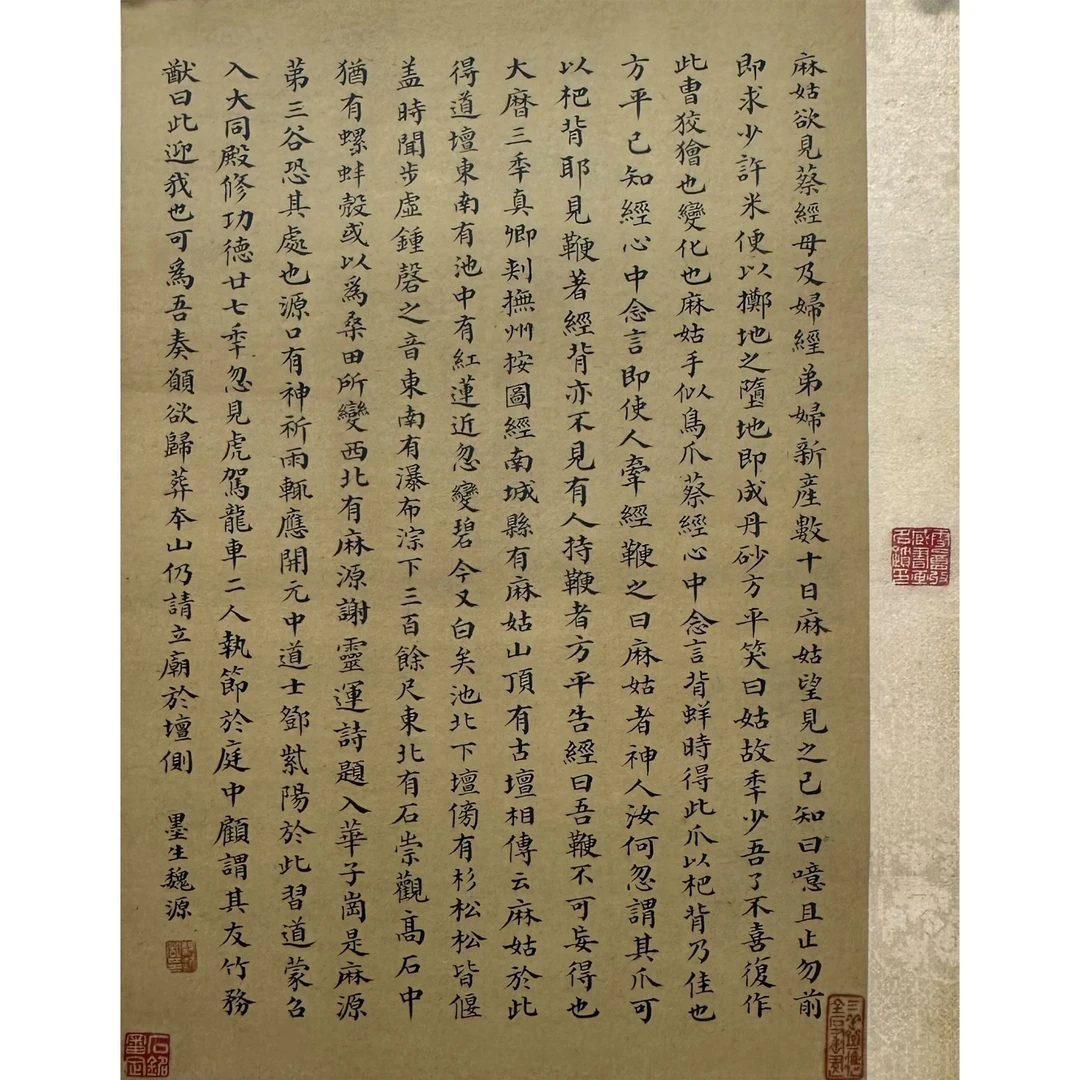 麻姑欲見蔡經母及婦經弟婦新產數十日麻姑望見之已知曰噫且止勿前
即求少許米便以擲地之墮地即成丹砂方平笑曰姑故秊少吾了不喜復作
此曹狡獪也變化也麻姑手似鳥爪蔡經心中念言背蛘時得此爪以杷背乃佳也
方平已知經心中念言即使人牽經鞭之曰麻姑者神人汝何忽謂其爪可
以杷背耶見鞭著經背亦不見有人持鞭者方平告經曰吾鞭不可妄得也
大曆三秊真卿刺撫州按圖經南城縣有麻姑山頂有古壇相傳云麻姑於此
得道壇東南有池中有紅蓮近忽變碧今又白矣池北下壇傍有杉松松皆偃
盖時聞步虛鍾磬之音東南有瀑布淙下三百餘尺東北有石崇觀高石中
猶有螺蚌殼或以為桑田所變西北有麻源謝靈運詩題入華子崗是麻源
苐三谷恐其處也源口有神祈雨輒應開元中道士鄧紫陽於此習道蒙召
入大同殿修功德廿七秊忽見虎駕龍車二人執節於庭中顧謂其友竹務
猷曰此迎我也可為吾奏願欲歸葬本山仍請立廟於壇側
墨生魏源
石銘